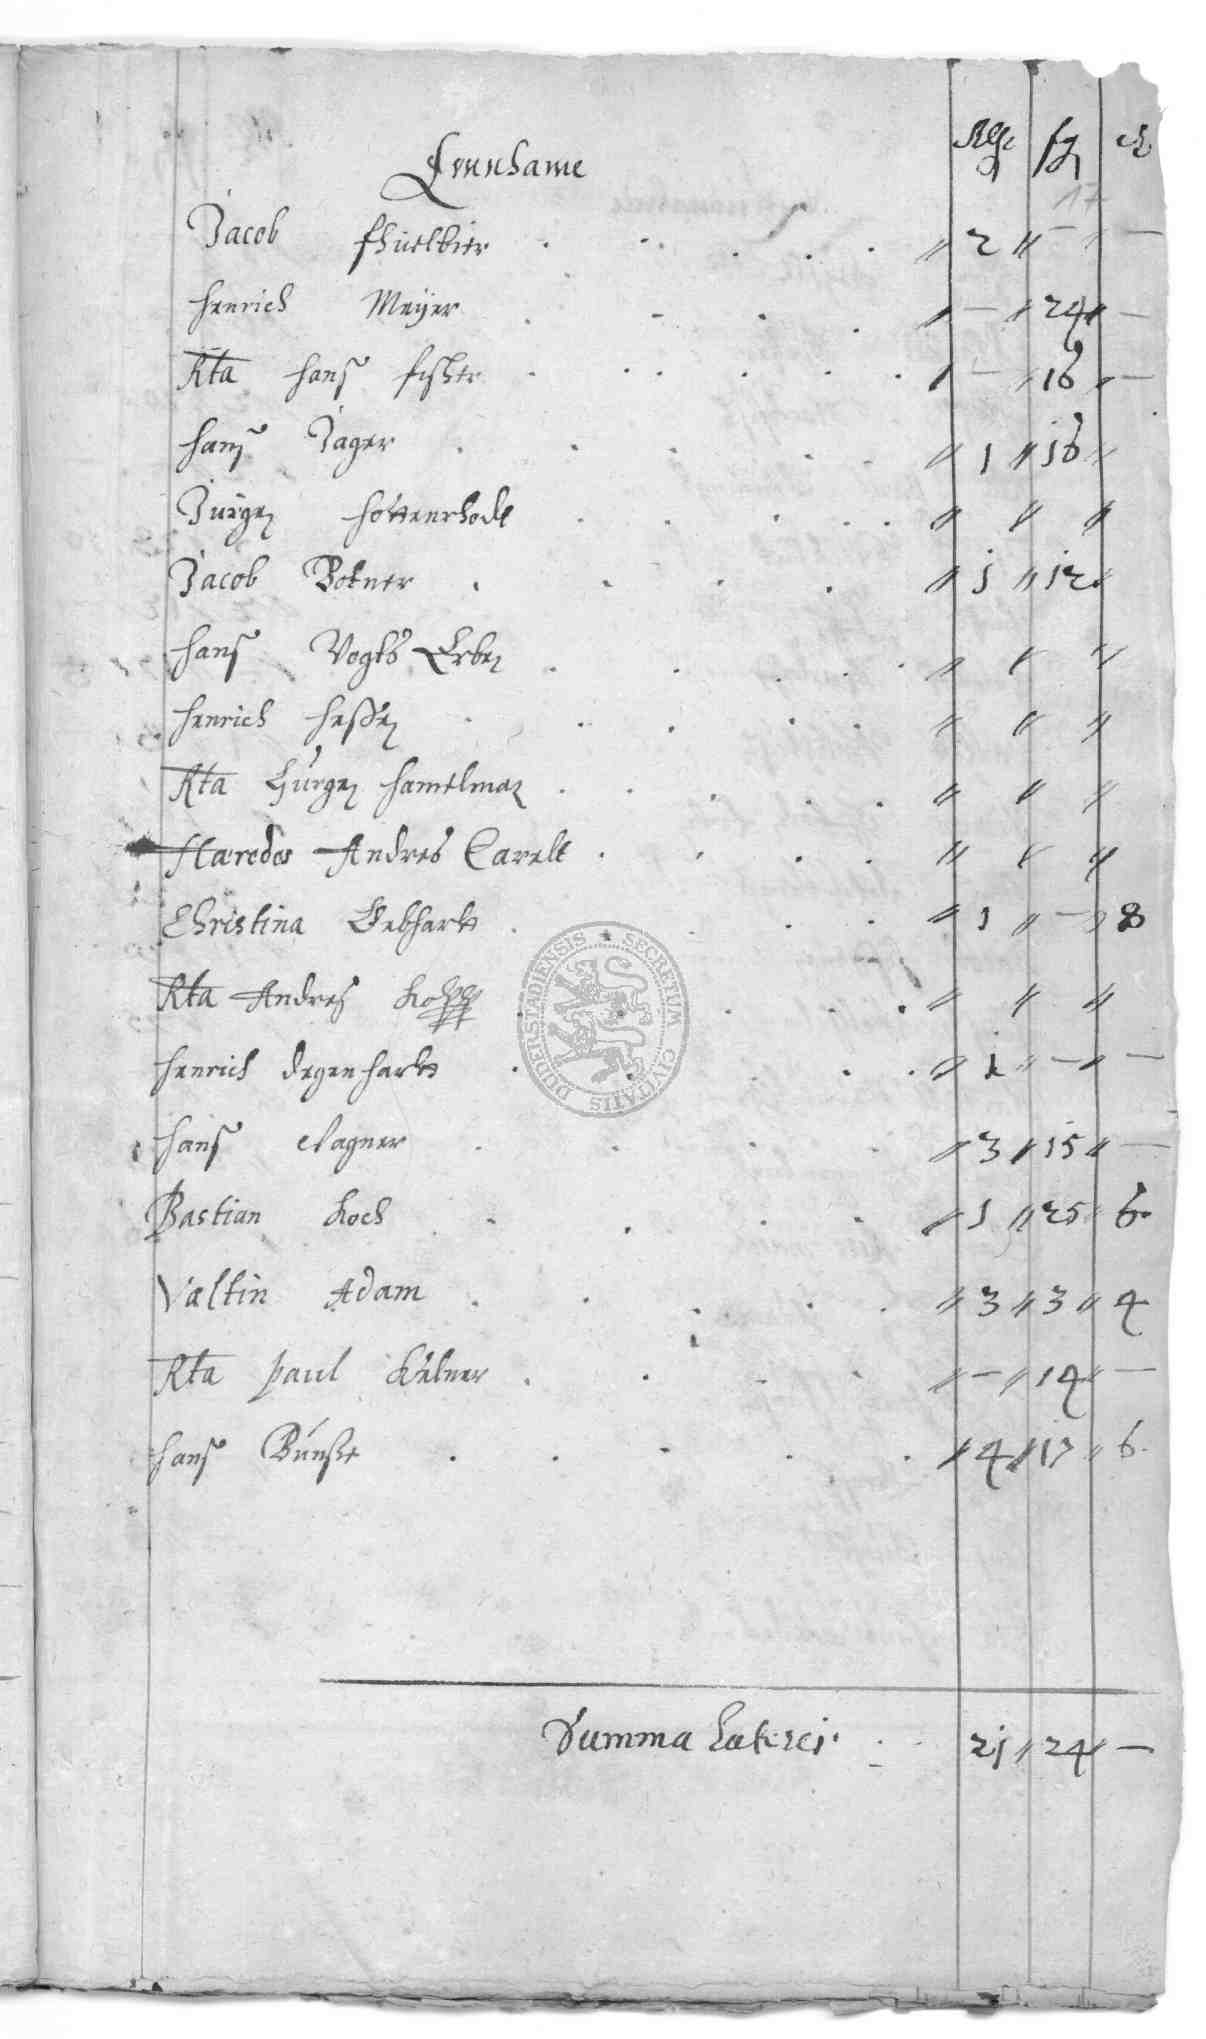 Einnahme Rthr ßg ₰
17
Jacob Fhüelbier . . . . . . " 2 " — " —
Henrich Meÿer . . . . " — " 24 " —
Rta Hanß Fischer . . . . . . " — " 16 " —
Hanß Jager . . . . . " 1 " 16 "
Jürgen Hottenrhodt . . . . . " " "
Jacob Bokner . . . . " 1 " 12 "
Hanß Vogts Erben . . . . . " " "
Henrich Heßen . . . . . " " "
Rta Jürgen Hamelman . . . . . " " "
Hæredes Andres Carelt . . . . " " "
Christina Gebhartt . . . " 1 " — " 8
Rta Andreß Koch . . . . " " "
Henrich Degenhartt . . . . . " 1 " — " —
Hanß Wagner . . . . " 3 " 15 " —
Bastian Koch . . . . " 1 " 25 " 6
Valtin Adam . . . . . " 3 " 3 " 4
Rta Paul Kelner . . . . " — " 14 " —
Hanß Bünße . . . . " 4 " 17 " 6
Summa Lateris . . 21 " 24 " —
SECRETUM CIVITATIS DUDERSTADIENSIS